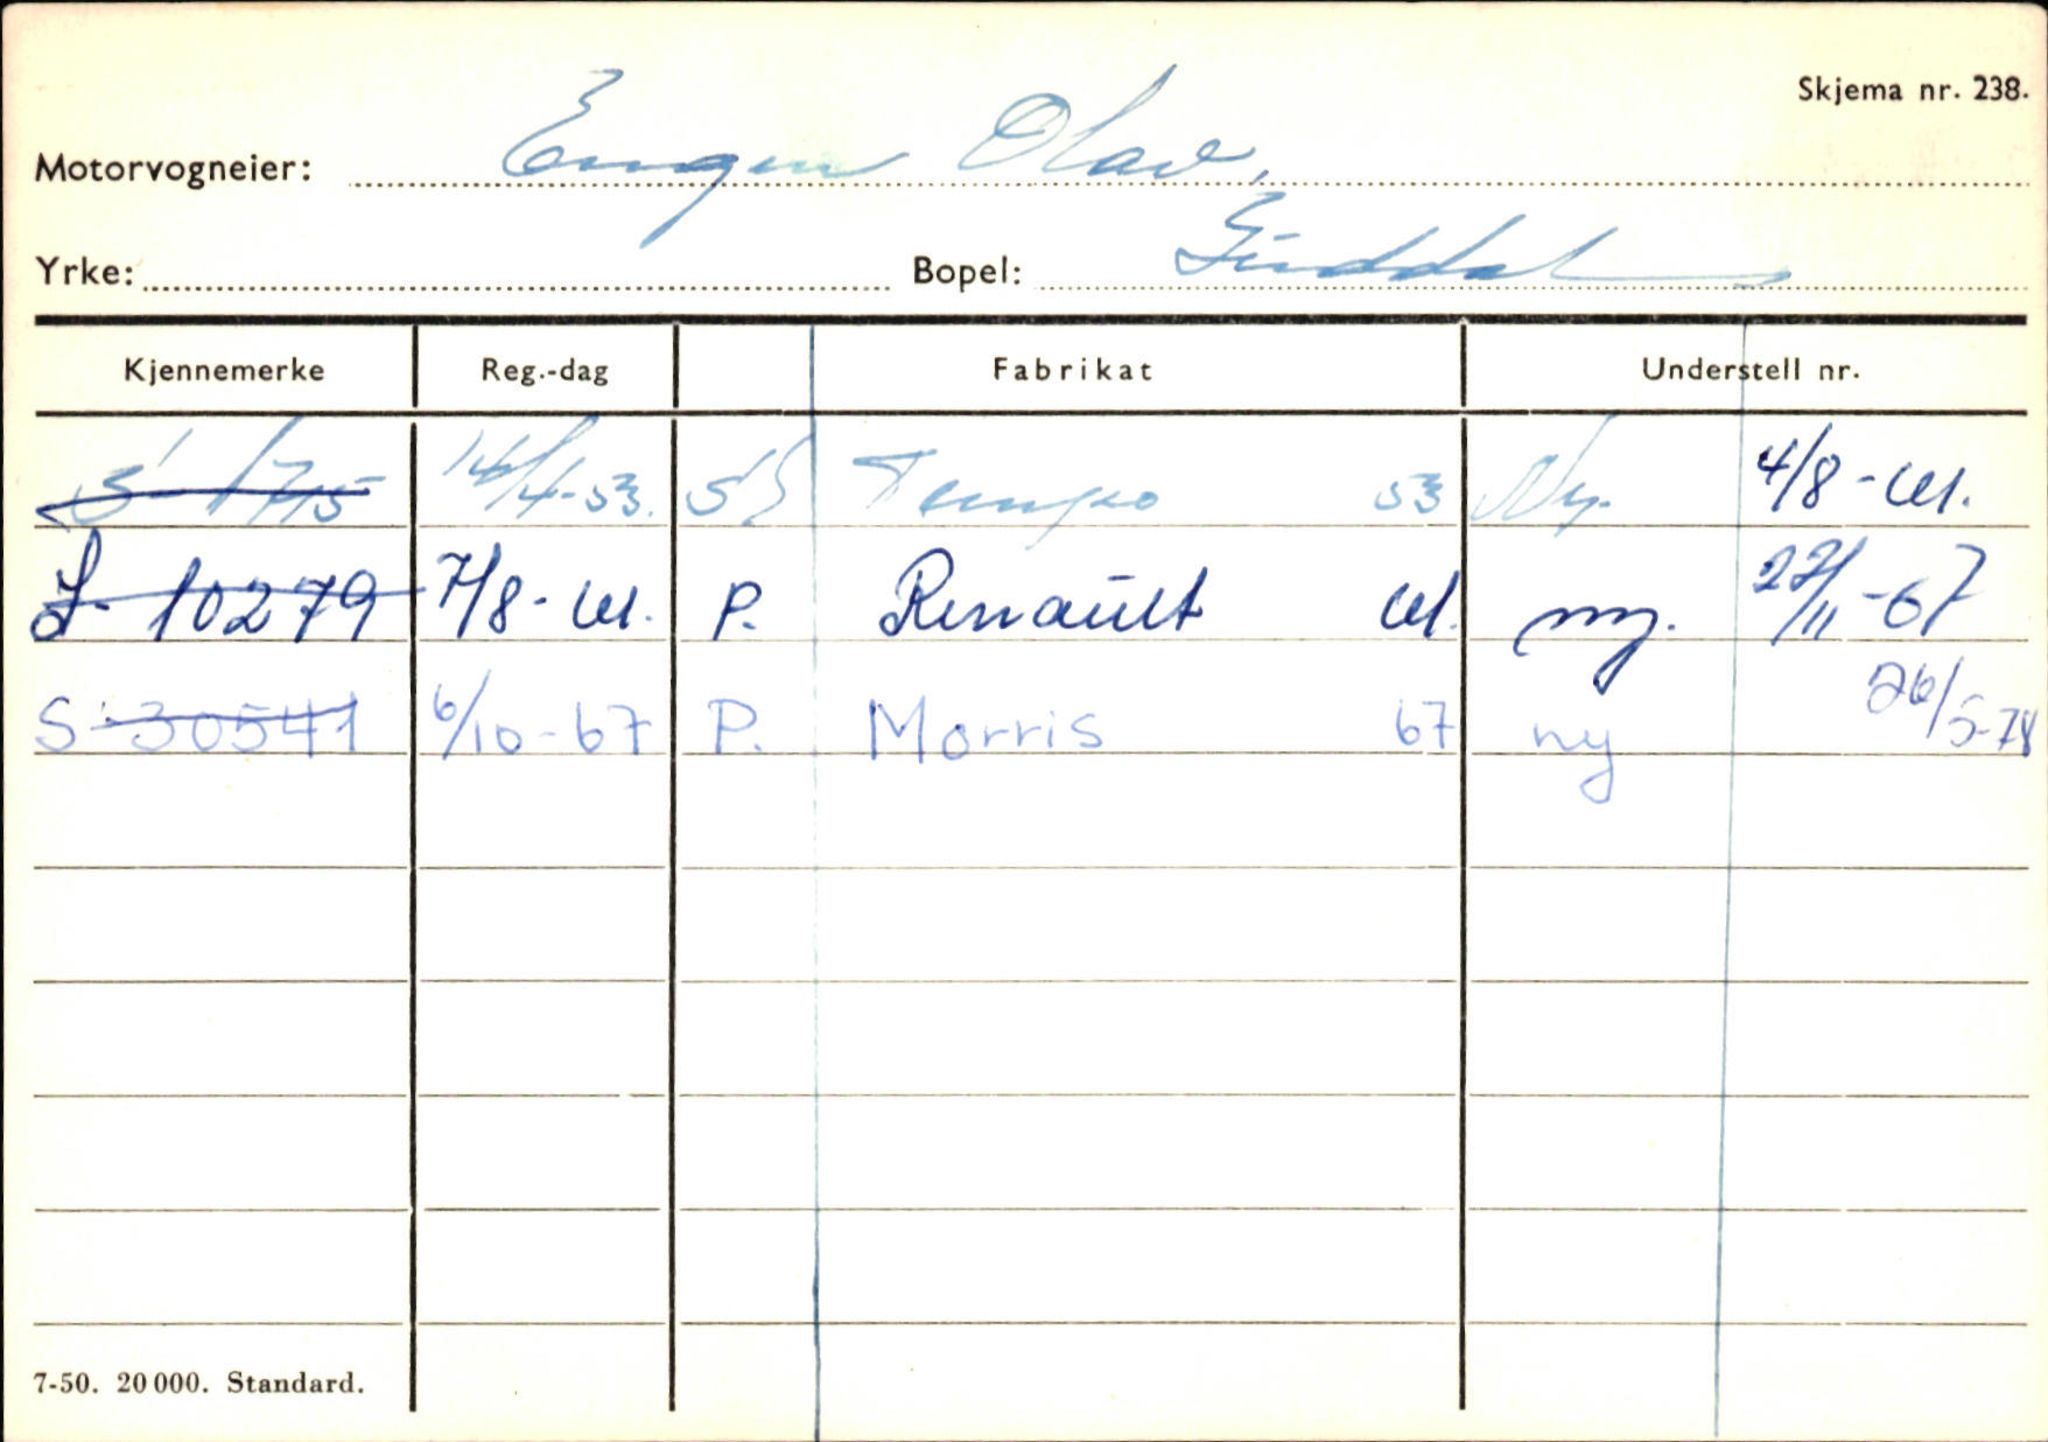 Skjema nr. 238.
Motorvogneier: Engen Olav,
Yrke: Bopel:
Kjennemerke Reg.-dag Fabrikat Understell nr.
S-1715 14/4-53. Tempo 53 Ny. 4/8-61.
S-10279 7/8-61. P. Renault 61. ny. 27/11-67
S-30541 6/10-67 P. Morris 67 ny 26/5-78
7-50. 20 000. Standard.